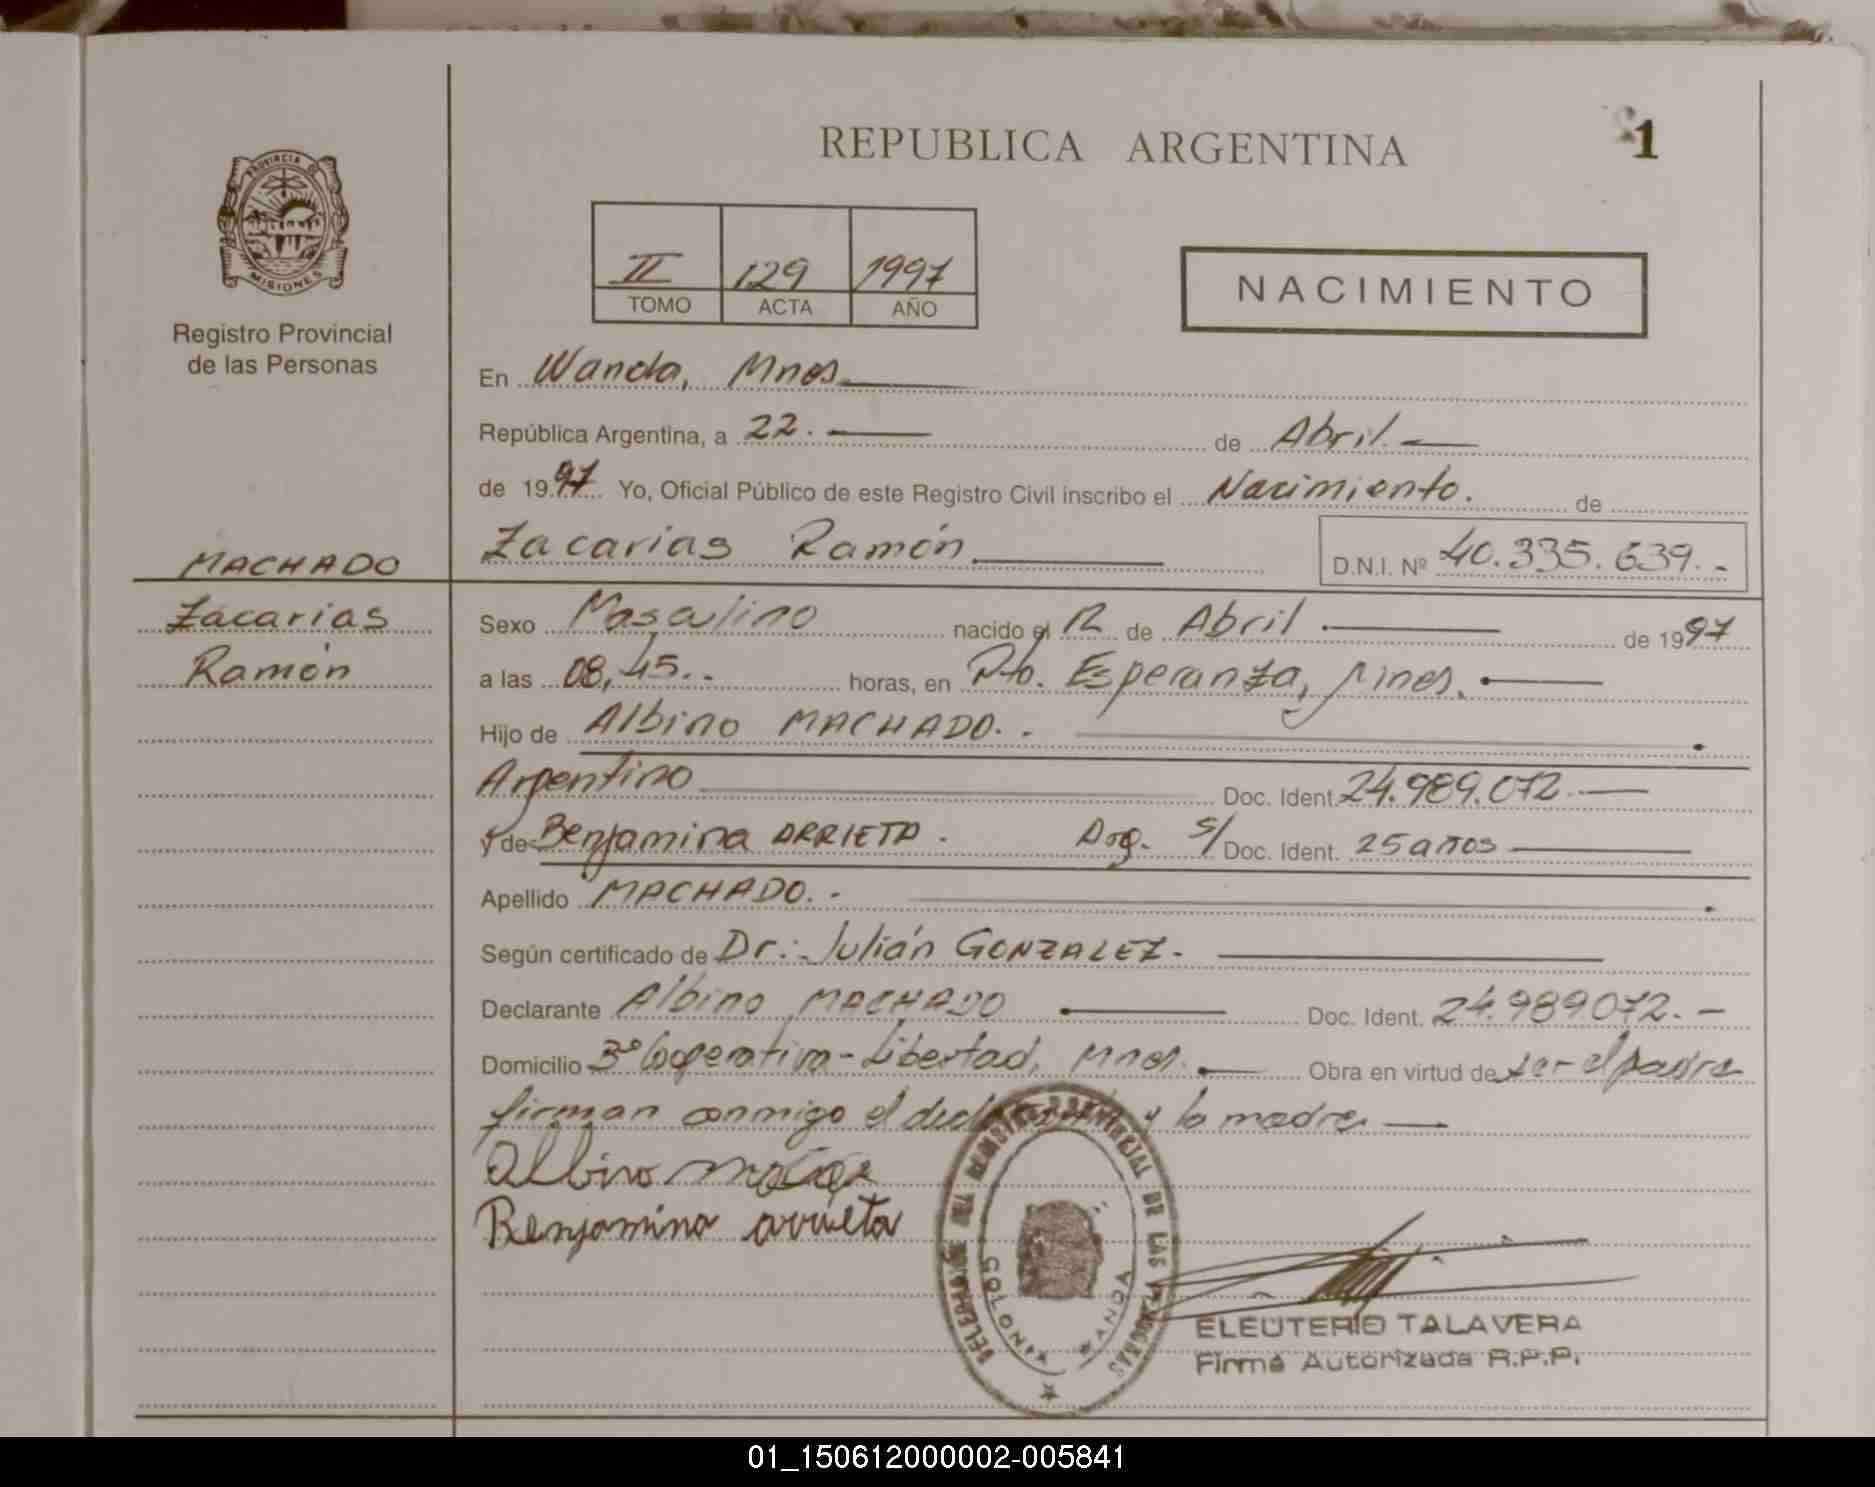 REPUBLICA ARGENTINA
1
PROVINCIA DE
MISIONES
Registro Provincial
de las Personas
II 129 1997
TOMO ACTA AÑO
NACIMIENTO
En Wanda, Mnes.
República Argentina, a 22. de Abril.
de 1997 Yo, Oficial Público de este Registro Civil inscribo el Nacimiento. de
Zacarias Ramón D.N.I. Nº 40.335.639.-
MACHADO
Zacarias
Ramón
Sexo Masculino nacido el 12 de Abril de 1997
a las 08,45.- horas, en Pto. Esperanza, Mnes.
Hijo de Albino MACHADO.-
Argentino Doc. Ident. 24.989.072.-
y de Benjamina ARRIETA. Arg. s/ Doc. Ident. 25 años
Apellido MACHADO.-
Según certificado de Dr.: Julián GONZALEZ.-
Declarante Albino MACHADO Doc. Ident. 24.989.072.-
Domicilio Bº Cooperativa - Libertad, Mnes. Obra en virtud de ser el padre
firman conmigo el declarante y la madre
Albino
Benjamina arrieta
DELEGACION DEL REGISTRO PROVINCIAL DE LAS PERSONAS
COLONIA WANDA
ELEUTERIO TALAVERA
Firma Autorizada R.P.P.
01_150612000002-005841